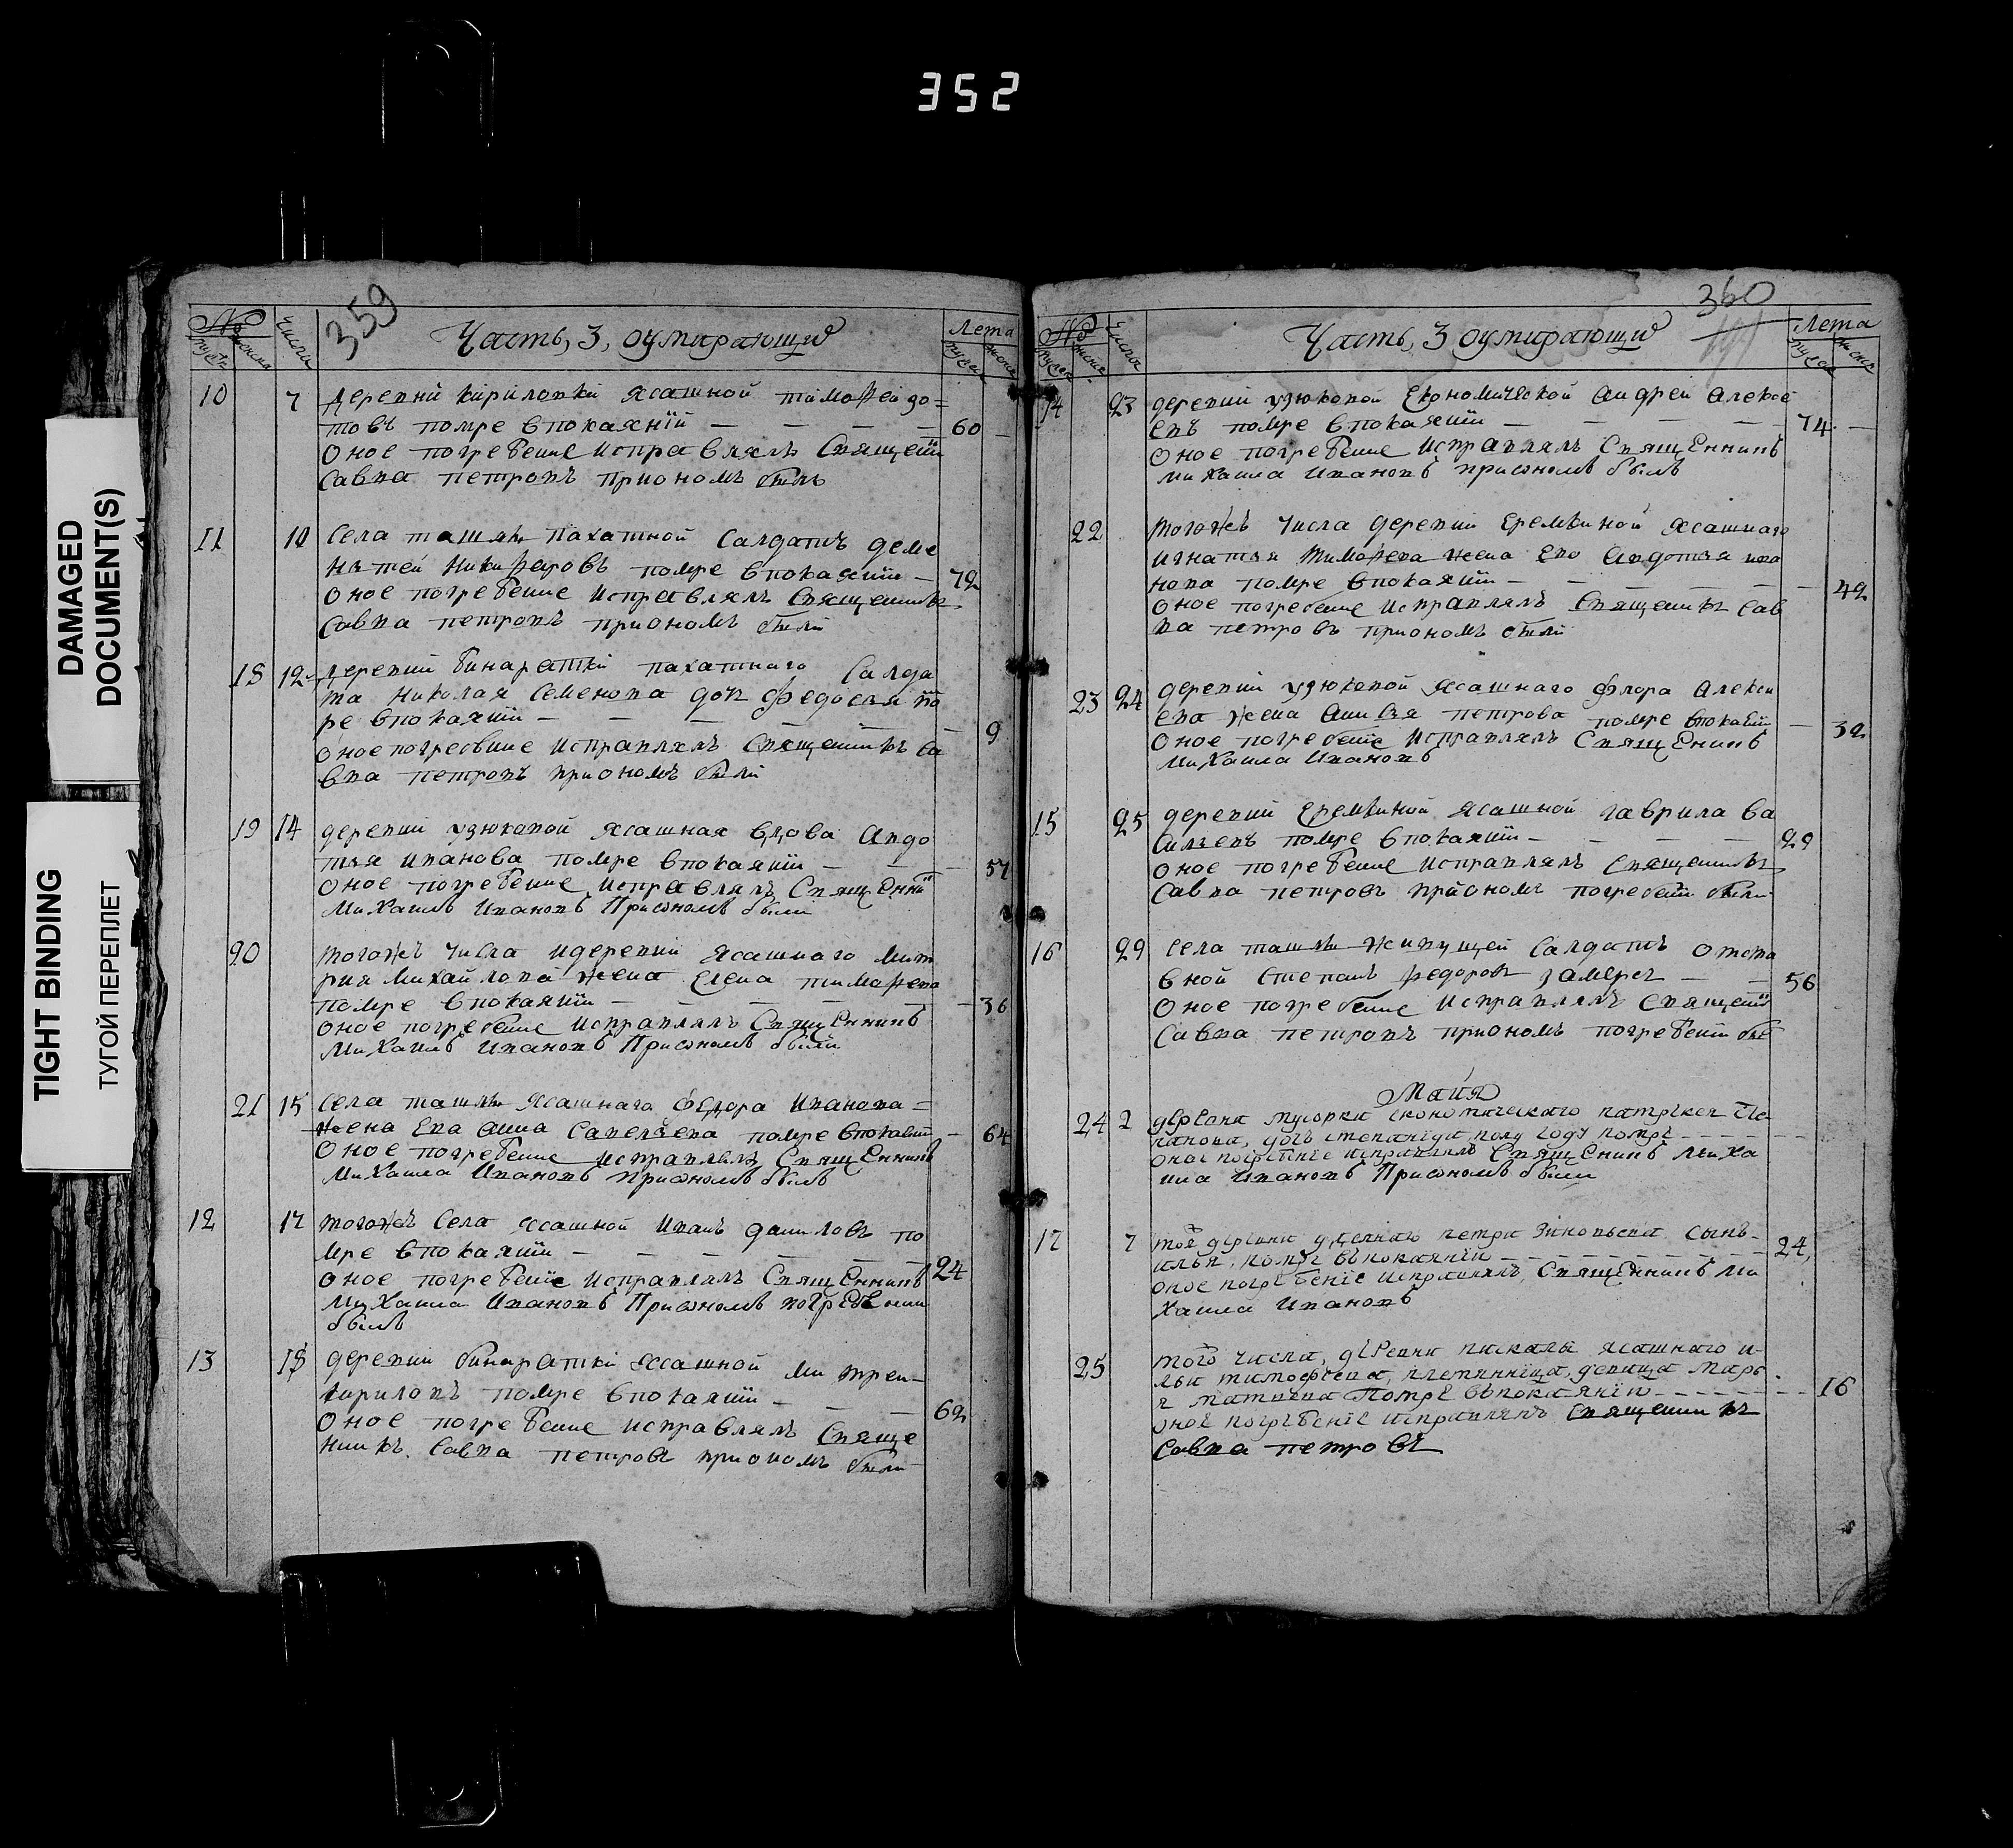 352
DAMAGED
DOCUMENT(S)
TIGHT BINDING
ТУГОЙ ПЕРЕПЛЕТ
359
№
Числа
Часть, 3, оумирающиѳ
Лета
10 7 деревни кириловки ясашной тимофей зо=
товъ помре впокаянїи 60
оное погребение исправлялъ Священи
Савва петровъ приономъ были
11 11 Села ташлы пахатной Салдатъ деме
нтей никифоровъ помре впокаянїи 72
оное погребение исправлялъ Священикъ
Савва петровъ приономъ были
18 12 деревни бинаратки пахатнаго Салда
та николая Семенова доч федосья по
ре впокаянїи 9
оное погребение исправлялъ Священикъ Са
вва петровъ приономъ были
19 14 деревни узюковой ясашная вдова авдо
тья иванова помре впокаянїи 57
оное погребение исправлялъ Священни
Михаилъ Ивановъ Приономъ были
20 тогожъ числа идеревни ясашнаго мит
рия михайлова жена елена тимофева
помре впокаянїи 36
оное погребение исправлялъ Священникъ
Михаилъ Ивановъ Приономъ были
21 15 Села ташлы ясашнаго федора иванова=
жена ева анна Савельева помре впокаянїи 64
оное погребение исправлялъ Священникъ
Михаила Ивановъ Приономъ былъ
12 17 тогожъ Села ясашной иванъ даниловъ по
мре впокаянїи 24
оное погребение исправлялъ Священникъ
Михаила Ивановъ Приономъ погребении
былъ
13 18 деревни бинаратки ясашной митреи
кириловъ помре впокаянїи 62
оное погребение исправлялъ Свяще
никъ Савва петровъ приономъ были
360
№
Числа
Часть, 3 оумирающиѳ
Лета
14 23 деревни узюковой Економической андреи алексе
евъ помре впокаянїи 74
оное погребение исправлялъ Священникъ
Михаила Ивановъ приономъ былъ
22 тогожъ числа деревни еремкиной ясашнаго
игнатья тимофева жена ево авдотья ива
нова помре впокаянїи 42
оное погребение исправлялъ Священикъ Сав
ва петровъ приономъ были
23 24 деревни узюковой ясашнаго флора алекси
ева жена анисья петрова помре впокаянїи 32
оное погребение исправлялъ Священикъ
Михаила Ивановъ
15 25 деревни еремкиной ясашной гаврила ва
сильевъ помре впокаянїи 29
оное погребение исправлялъ Священикъ
Савва петровъ приономъ погребени были
16 29 Села ташлы живущей Салдатъ отста
вной степанъ федоровъ замерсъ 56
оное погребение исправлялъ Священи
Савва петровъ приономъ погребени бы
Маия
24 2 деревни мусорки економическаго
дочь степанида полу году помре
оное погребение исправлялъ Священикъ Миха
ила Ивановъ Приономъ были
17 7 тоя деревни удельнаго петра Зиновьева сынъ
илья, помре въпокаянїи 24
оное погребенїе исправлялъ, Священникъ Ми
хаила Ивановъ
25 того числа, деревни пискалы ясашнаго и-
льи тимофеева, племянница, девица марь
я помре въпокаянїи 16
оное погребенїе исправлялъ Священикъ
Савва петровъ